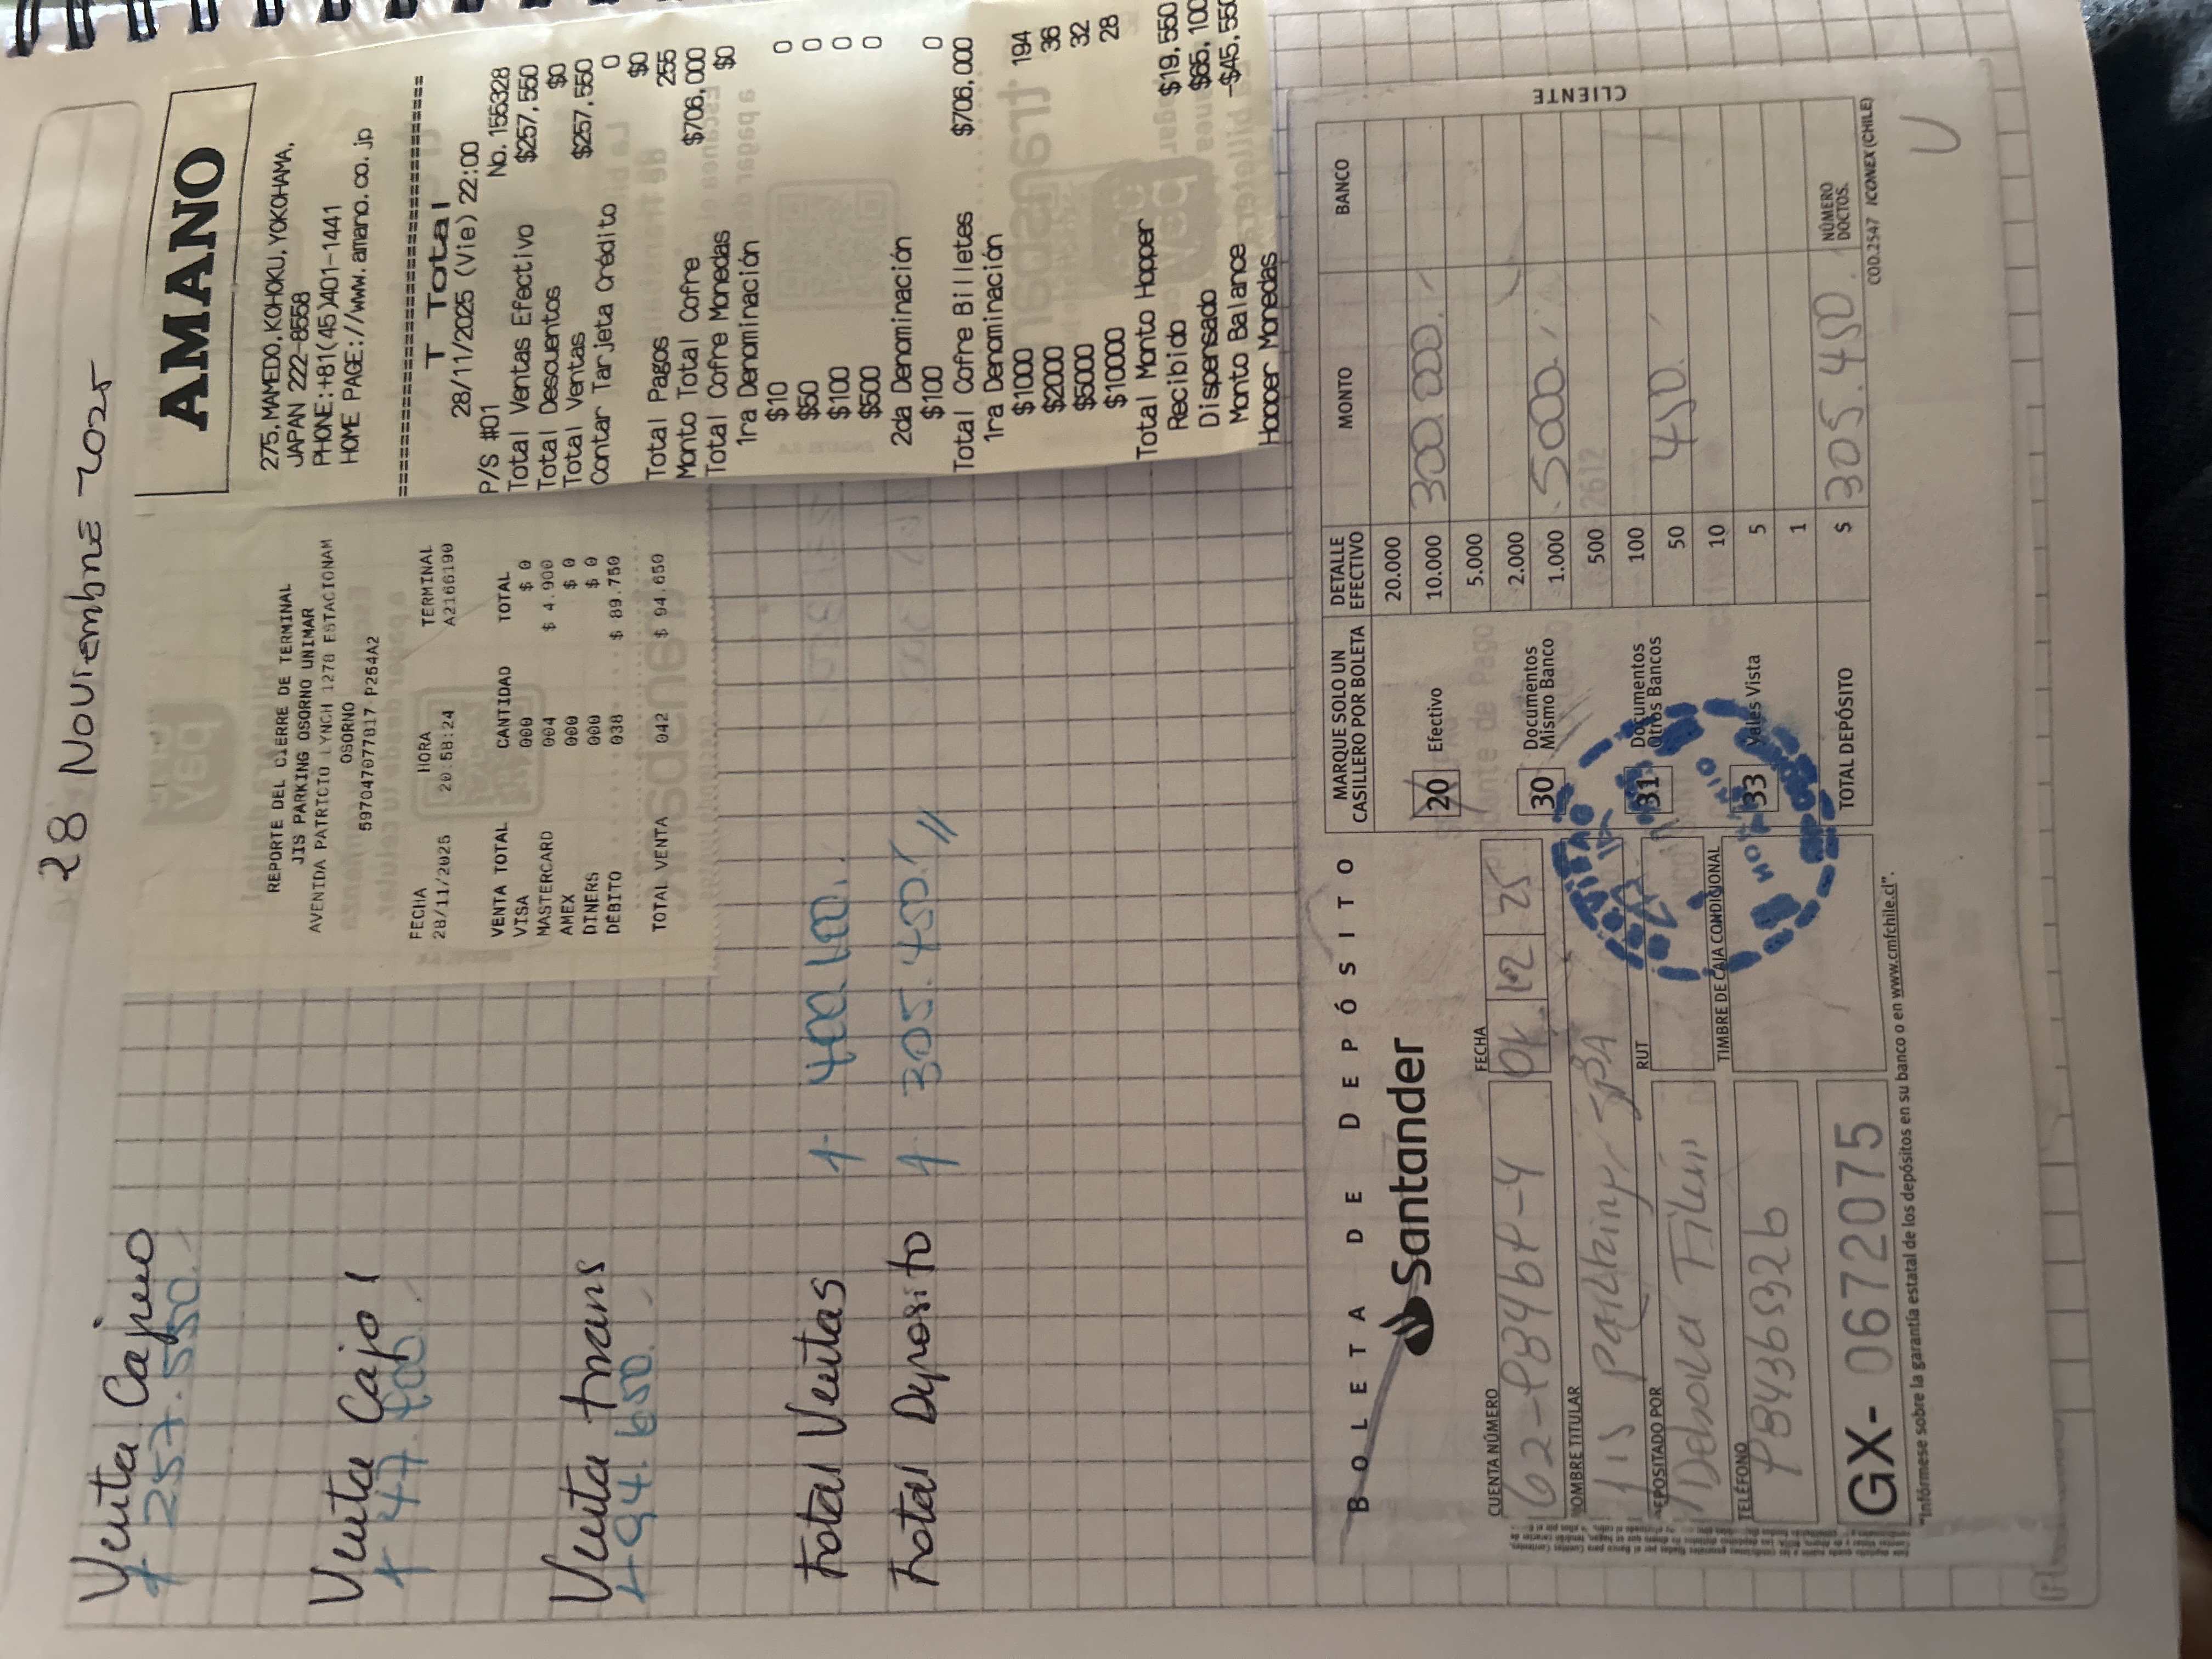 28 Noviembre 2025
Venta Cajero
257.550.
Venta Caja 1
47.900.
Venta trans
94.650.
Total Ventas
$ 400.100.
Total Deposito
$ 305.450.
REPORTE DEL CIERRE DE TERMINAL
JIS PARKING OSORNO UNIMAR
AVENIDA PATRICIO LYNCH 1278 ESTACIONAM
OSORNO
597047077817-P254A2
FECHA HORA TERMINAL
28/11/2025 20:58:24 A2166190
VENTA TOTAL CANTIDAD TOTAL
VISA 000 $ 0
MASTERCARD 004 $ 4.900
AMEX 000 $ 0
DINERS 000 $ 0
DÉBITO 038 $ 89.750
TOTAL VENTA 042 $ 94.650
AMANO
275, MAMEDO, KOHOKU, YOKOHAMA,
JAPAN 222-8558
PHONE:+81(45)401-1441
HOME PAGE://www.amano.co.jp
T Total
28/11/2025 (Vie) 22:00
P/S #01 No. 155328
Total Ventas Efectivo $257,550
Total Descuentos $0
Total Ventas $257,550
Contar Tarjeta Crédito 0
$0
Total Pagos 255
Monto Total Cofre $706,000
Total Cofre Monedas $0
1ra Denominación
$10 0
$50 0
$100 0
$500 0
2da Denominación
$100 0
Total Cofre Billetes $706,000
1ra Denominación
$1000 194
$2000 36
$5000 32
$10000 28
Total Monto Hopper
Recibido $19,550
Dispensado $65,100
Monto Balance -$45,550
Hopper Monedas
BOLETA DE DEPÓSITO
Santander
CUENTA NÚMERO
FECHA
12 25
NOMBRE TITULAR
Jis Parking SPA
DEPOSITADO POR
RUT
Debora
TELÉFONO
TIMBRE DE CAJA CONDICIONAL
GX- 0672075
"Infórmese sobre la garantía estatal de los depósitos en su banco o en www.cmfchile.cl".
MARQUE SOLO UN
CASILLERO POR BOLETA
20 Efectivo
30 Documentos
Mismo Banco
31 Documentos
Otros Bancos
33 Vales Vista
TOTAL DEPÓSITO
DETALLE
EFECTIVO
MONTO
BANCO
20.000
10.000 300.000.
5.000
2.000
1.000 5000
500
100
50 450.
10
5
1
$ 305.450.
NÚMERO
DOCTOS.
COD.2547 ICONEX (CHILE)
CLIENTE